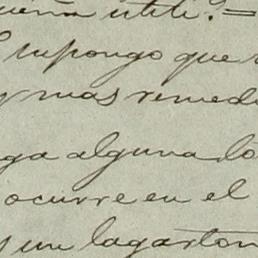 utili? =
supongo que
y mas remed
ga alguna lo
ocurre en el
un lagarton